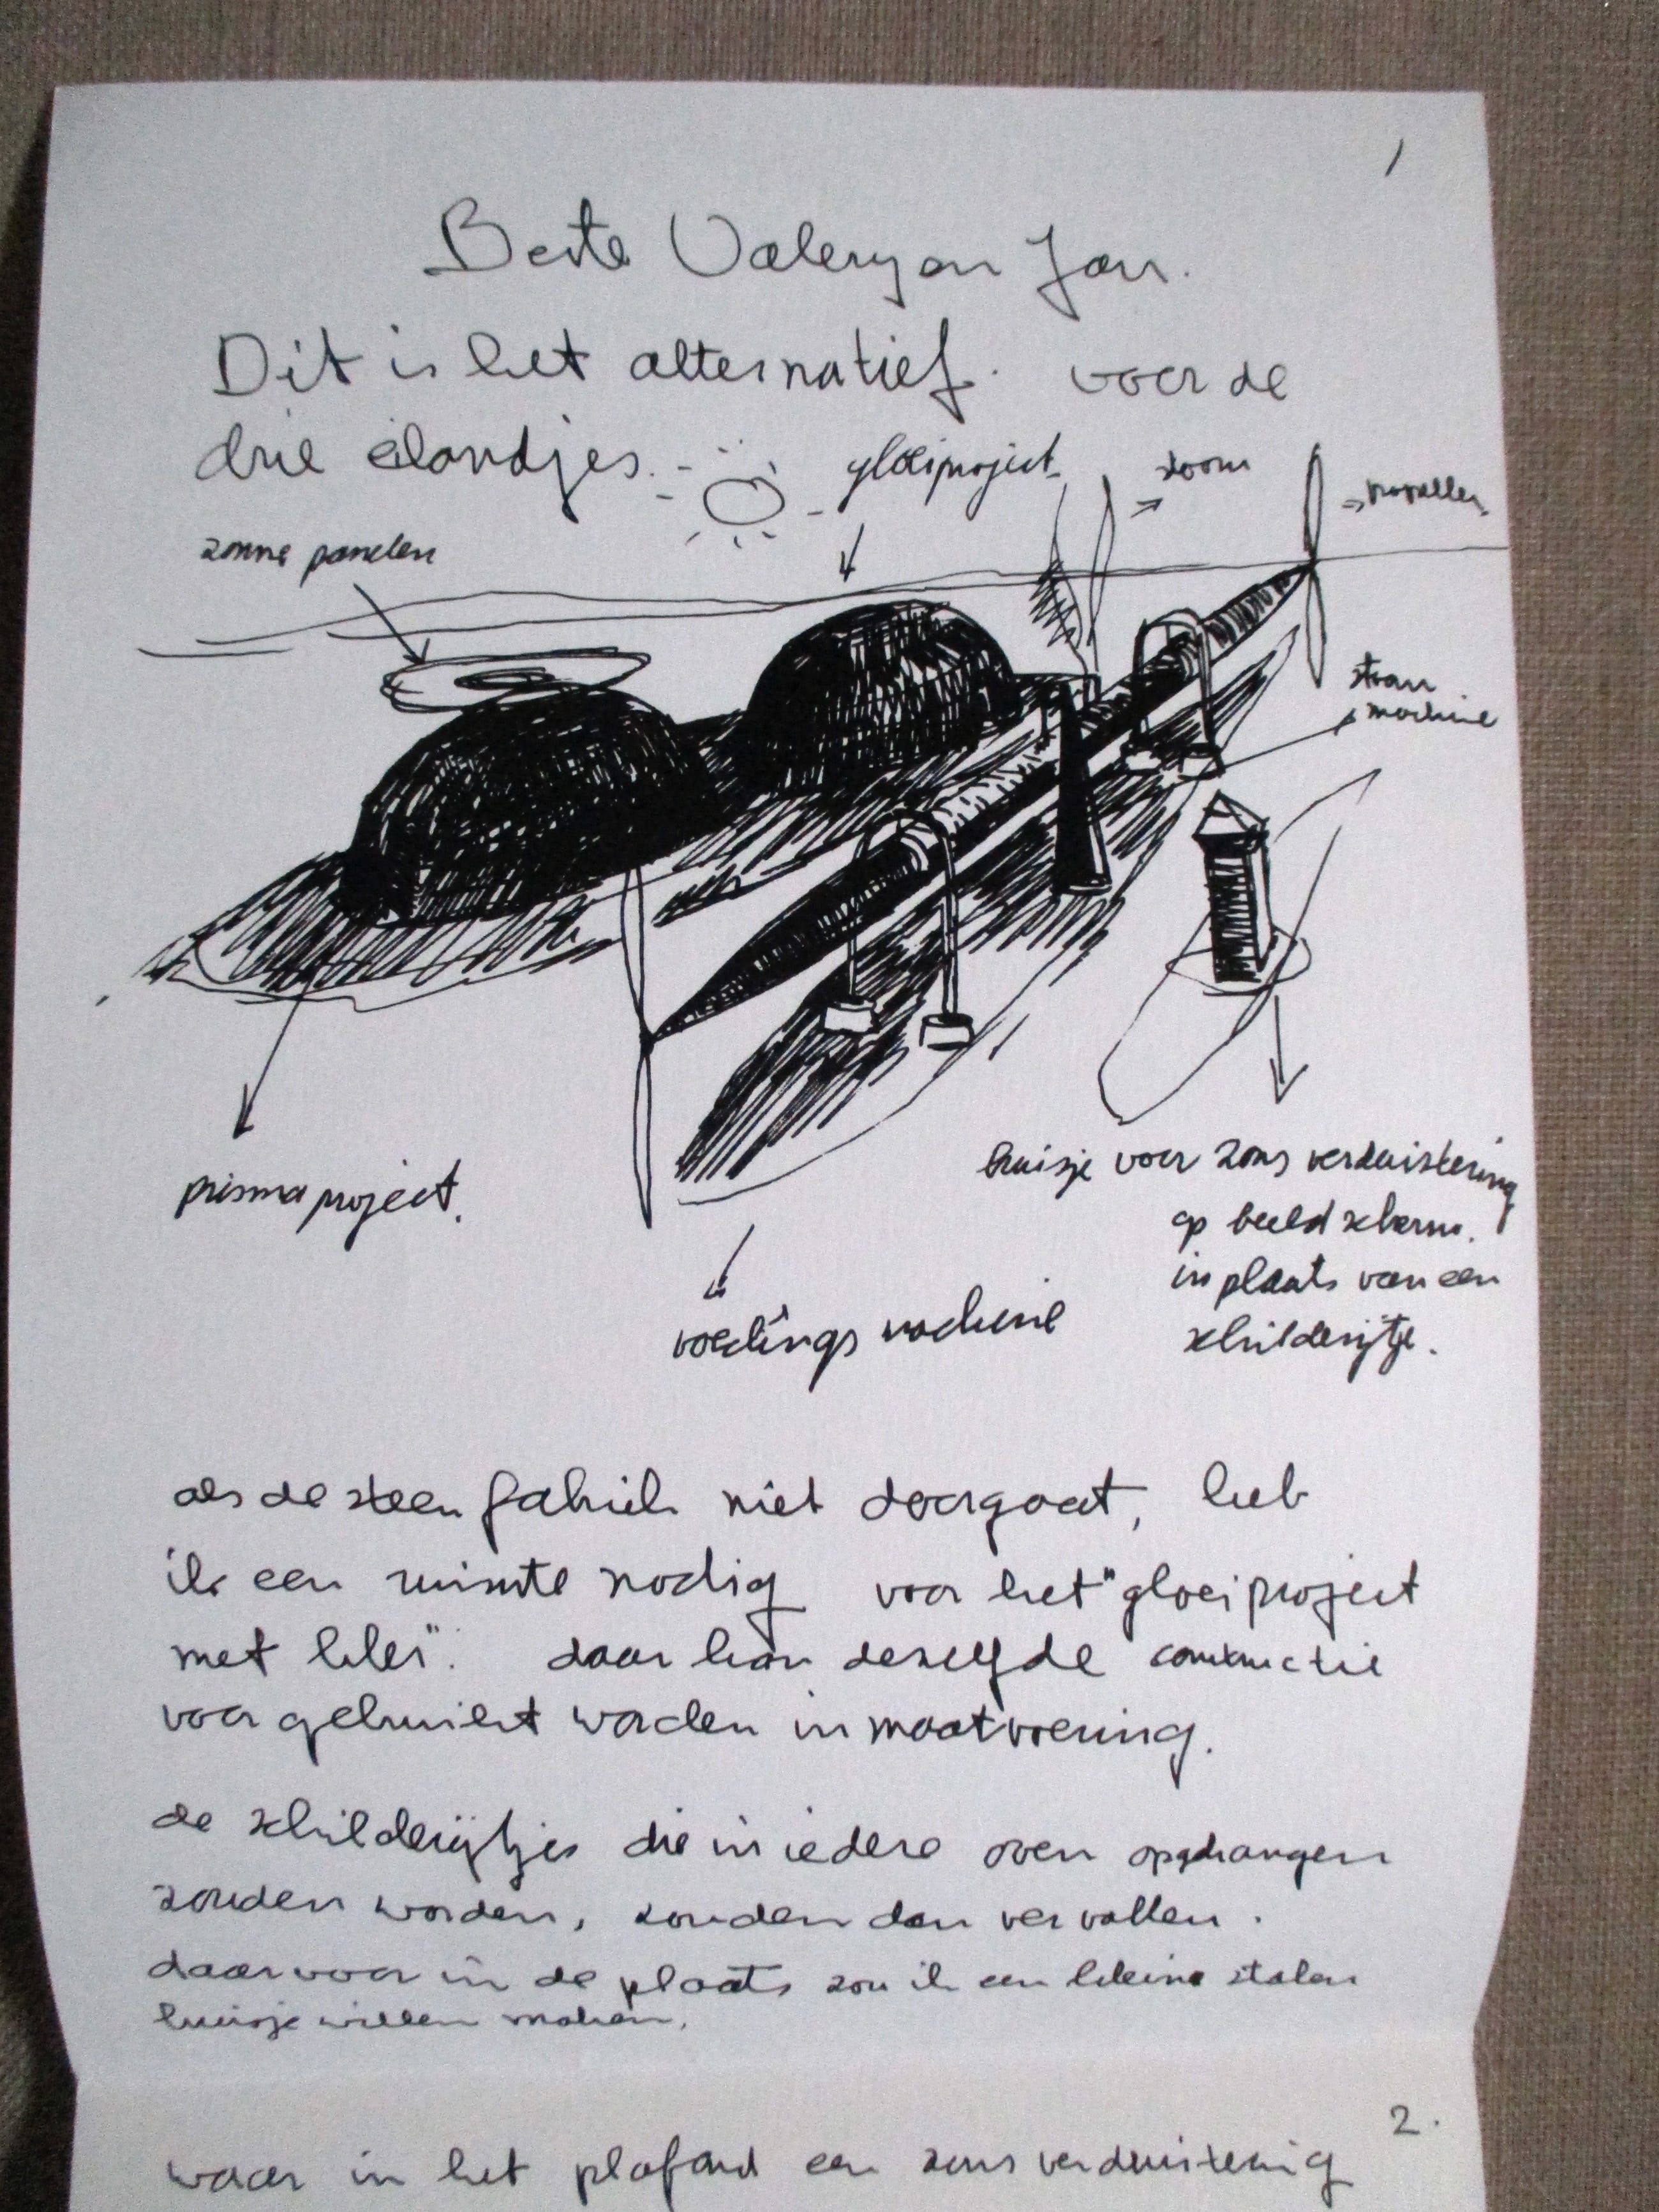 1
Beste Valery en Jan.
Dit is het alternatief voor de
drie eilandjes.
gloeiproject
stoom
propeller
zonne panelen
stoom
machine
prisma project.
huisje voor zons verduistering
op beeld scherm.
in plaats van een
schilderijtje.
voedings machine
als de steen fabriek niet doorgaat, heb
ik een ruimte nodig voor het "gloei project
met klei". daar kan deselfde constructie
voor gebruikt worden in maatvoering.
de schilderijtjes die in iedere oven opgehangen
zouden worden, zouden dan vervallen.
daar voor in de plaats zou ik een kleine stalen
huisje willen maken.
2.
waar in het plafond een zons verduistering